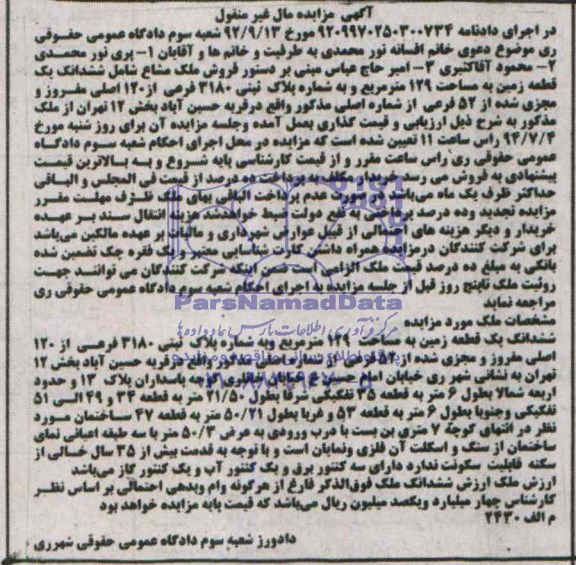 آگهی مزایده مال غیر منقول
در اجرای دادنامه ۹۲۰۹۹۷۰۲۵۰۳۰۰۷۳۴ مورخ ۹۲/۹/۱۳ شعبه سوم دادگاه عمومی حقوقی
ری موضوع دعوی خانم افسانه نور محمدی به طرفیت و خانم ها و آقایان ۱- پری نور محمدی
۲- محمود آقاکثیری ۳- امیر حاج عباس مبنی بر دستور فروش ملک مشاع شامل ششدانگ یک
قطعه زمین به مساحت ۱۲۹ مترمربع و به شماره پلاک ثبتی ۳۱۸۰ فرعی از ۱۲۰ اصلی مفروز و
مجزی شده از ۵۲ فرعی از شماره اصلی مذکور واقع درقریه حسین آباد بخش ۱۲ تهران از ملک
مذکور به شرح ذیل ارزیابی و قیمت گذاری بعمل آمده وجلسه مزایده آن برای روز شنبه مورخ
۹۴/۷/۴ راس ساعت ۱۱ تعیین شده است که مزایده در محل اجرای احکام شعبه سوم دادگاه
عمومی حقوقی ری راس ساعت مقرر و از قیمت کارشناسی پایه شروع و به بالاترین قیمت
پیشنهادی به فروش می رسد خریدار مکلف به پرداخت ده درصد از قیمت فی المجلس و الباقی
حداکثر ظرف یک ماه می‌باشد در صورت عدم پرداخت الباقی بهای ملک ظرف مهلت مقرر
مزایده تجدید وده درصد پرداختی به نفع دولت ضبط خواهدشد هزینه انتقال سند بر عهده
خریدار و دیگر هزینه های احتمالی از قبیل عوارض شهرداری و مالیات بر عهده مالکین می‌باشد
برای شرکت کنندگان درمزایده همراه داشتن کارت شناسایی معتبر و یک فقره چک تضمین شده
بانکی به مبلغ ده درصد قیمت ملک الزامی است ضمن اینکه شرکت کنندگان می توانند جهت
روئیت ملک تاپنج روز قبل از جلسه مزایده به اجرای احکام شعبه سوم دادگاه عمومی حقوقی ری
مراجعه نماید
ParsNamadData
مشخصات ملک مورد مزایده
ششدانگ یک قطعه زمین به مساحت ۱۲۹ مترمربع وبه شماره پلاک ثبتی ۳۱۸۰ فرعی از ۱۲۰
اصلی مفروز و مجزی شده از ۵۲ فرعی از شماره اصلی مذکور واقع درقریه حسین آباد بخش ۱۲
تهران به نشانی شهر ری خیابان امام حسین خ کوچه پاسداران پلاک ۱۳ و حدود
اربعه شمالا بطول ۶ متر به قطعه ۳۵ تفکیکی شرقا بطول ۲۱/۵۰ متر به قطعه ۳۴ و ۴۹ الی ۵۱
تفکیکی وجنوبا بطول ۶ متر به قطعه ۵۳ و غربا بطول ۵۰/۲۱ متر به قطعه ۴۷ ساختمان مورد
نظر در انتهای کوچه ۷ متری بن بست با درب ورودی به عرض ۵۰/۳ متر با سه طبقه اعیانی نمای
ساختمان از سنگ و اسکلت آن فلزی ونمایان است و با توجه به قدمت بیش از ۳۵ سال خالی از
سکنه قابلیت سکونت ندارد دارای سه کنتور برق و یک کنتور آب و یک کنتور گاز می‌باشد
ارزش ملک ارزش ششدانگ ملک فوق‌الذکر فارغ از هرگونه وام وبدهی احتمالی بر اساس نظر
کارشناس چهار میلیارد ویکصد میلیون ریال می‌باشد که قیمت پایه مزایده خواهد بود
م الف ۲۴۳۰
دادورز شعبه سوم دادگاه عمومی حقوقی شهرری